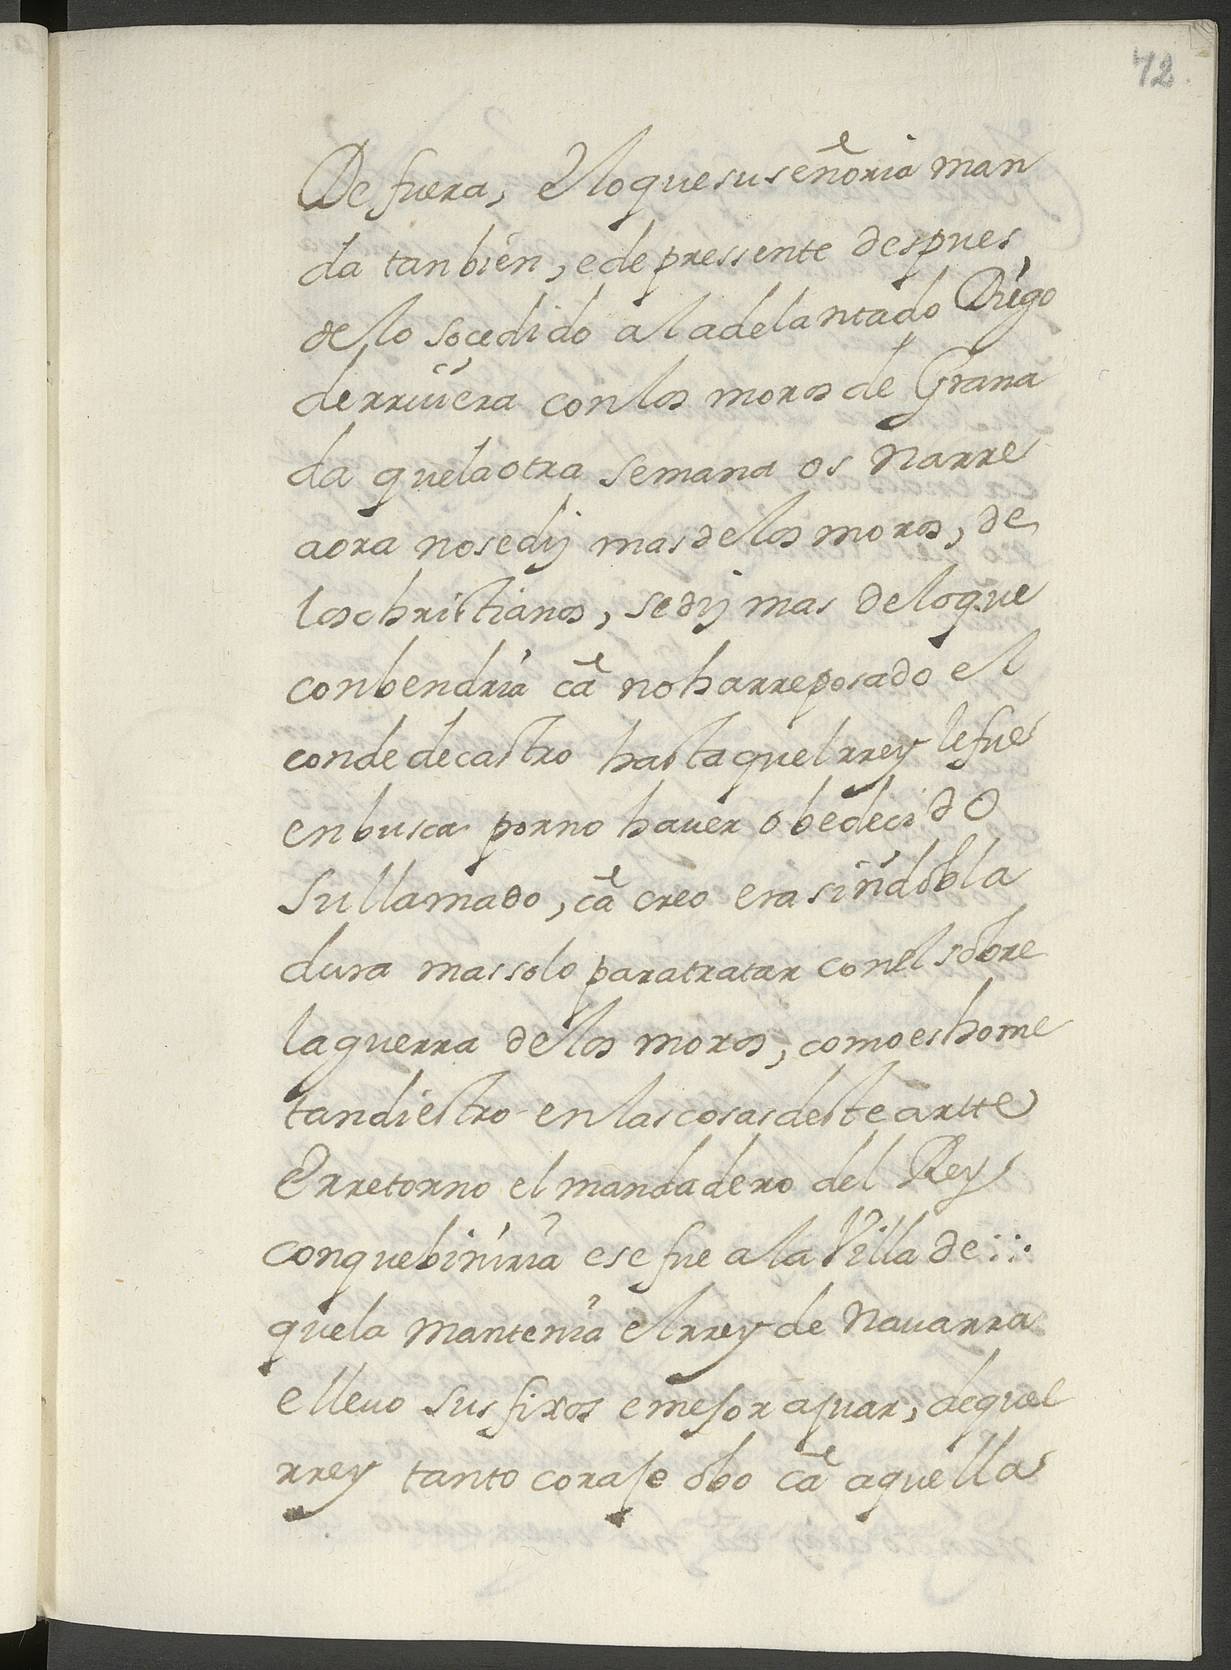 72.
De fuera, E lo que su señoria man
da tanbien, e de pressente despues
de lo socedido al adelantado Diego
de rrivera con los moros de Grana
da que la otra semana os narre
aora no se dij mas de los moros, de
los christianos, se dij mas de lo que
conbendria cã no ha rreposado el
conde de castro hasta quel rrey le fue
en busca por no haver obedecido
su llamado, cã creo era sin dobla
dura mas solo para tratar con el sobre
la guerra de los moros, como es home
tan diestro en las cosas deste artte
E rretorno el mandadero del Rey
con que biniria e se fue a la Villa de :::
que la mantenia el rrey de Navarra
e llevo sus fixos e mejor ajuar, de quel
rrey tanto coraje obo cã aquella